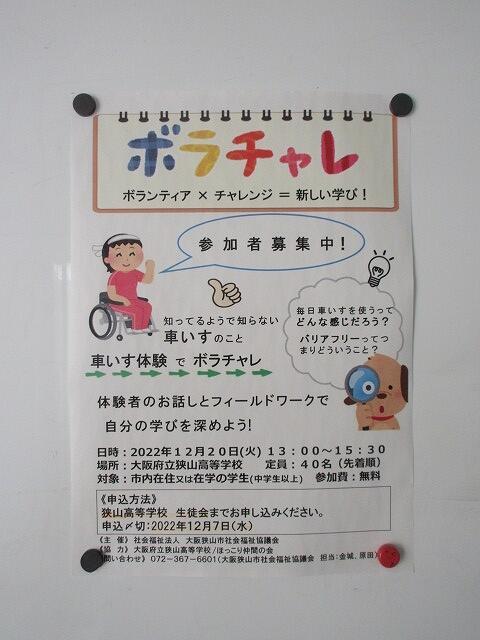 ボラチャレ
ボランティア × チャレンジ = 新しい学び！
参加者募集中！
知ってるようで知らない
車いすのこと
車いす体験 で ボラチャレ
毎日車いすを使うって
どんな感じだろう？
バリアフリーってつ
まりどういうこと？
体験者のお話しとフィールドワークで
自分の学びを深めよう！
日時：2022年12月20日(火) 13：00～15：30
場所：大阪府立狭山高等学校 定員：40名（先着順）
対象：市内在住又は在学の学生(中学生以上) 参加費：無料
《申込方法》
狭山高等学校 生徒会までお申し込みください。
申込〆切：2022年12月7日(水)
《主 催》 社会福祉法人 大阪狭山市社会福祉協議会
《協 力》 大阪府立狭山高等学校/ほっこり仲間の会
問い合わせ》 072-367-6601（大阪狭山市社会福祉協議会 担当：金城、原田